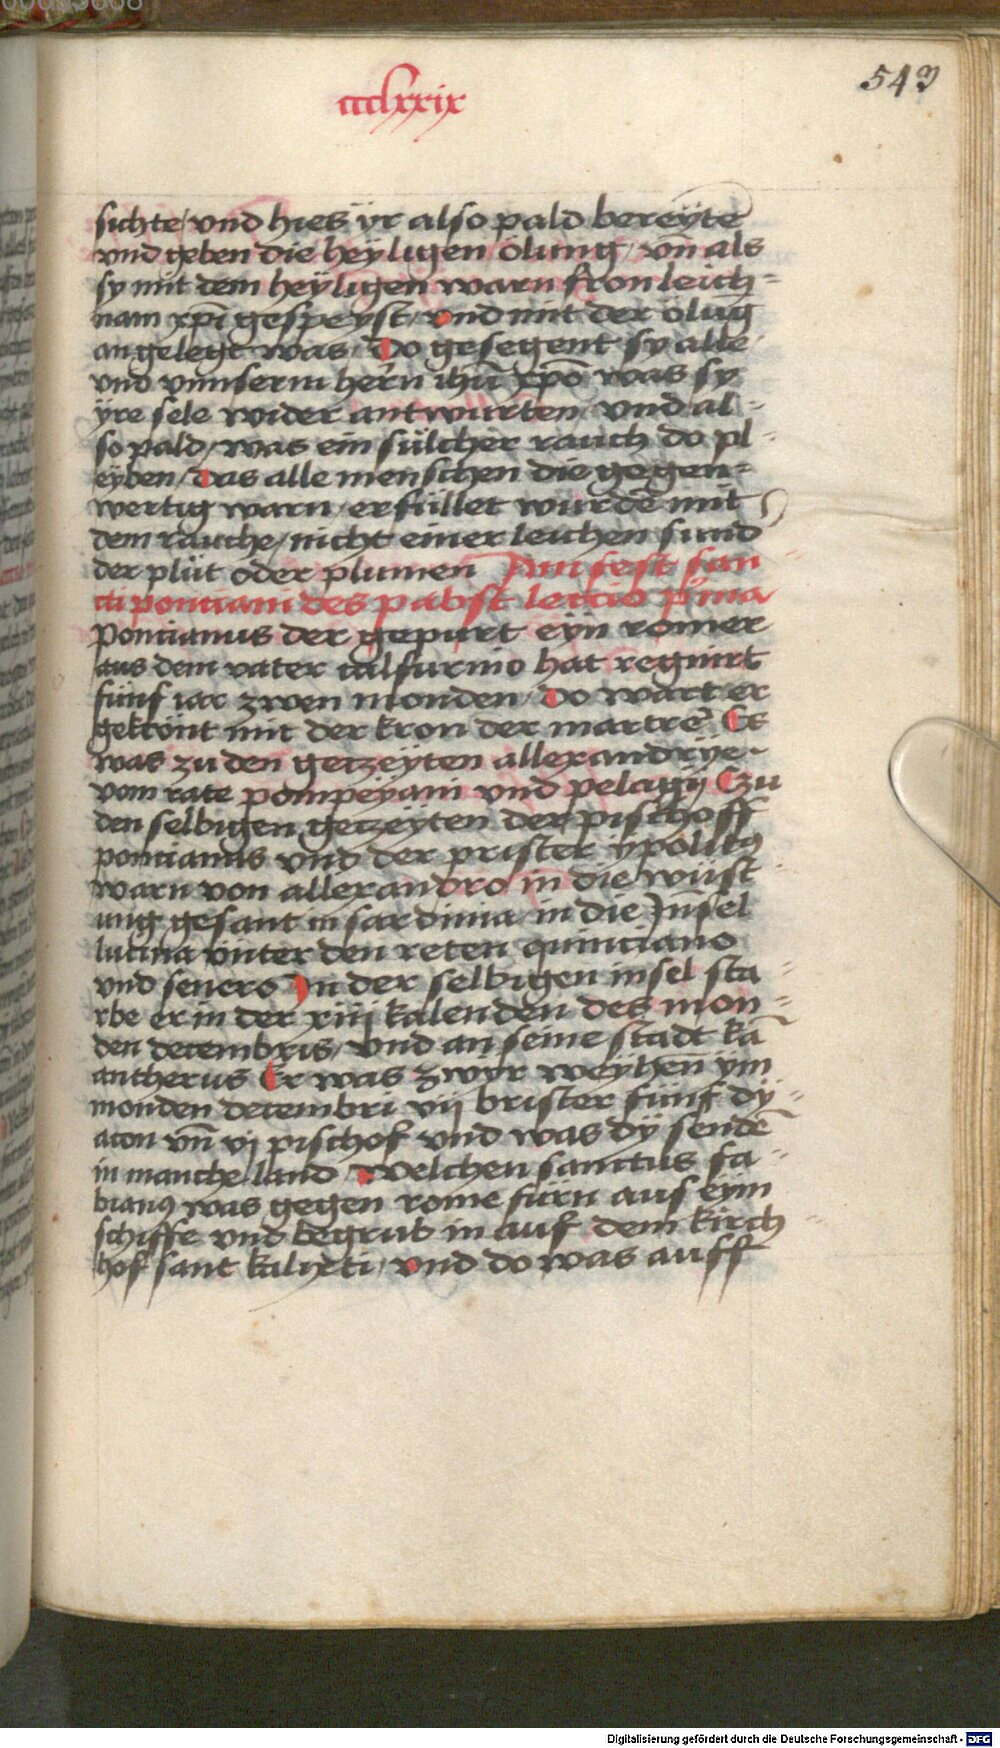 543
ccclxxix
sichte / vnd hies yr also pald bereyte
vnd geben die heyligen ölung / vn̄ als
sy mit dem heyligen warn fronleich=
nam xp̄i gespeyst / vnd mit der ölūg
an gelegt was / Do gesegent sy alle /
vnd vnnserm hern ihū xpō was sy
ÿre sele wider antwurten / vnd al=
so pald / was ein sülcher rauch do pl=
eyben / Das alle menschen die gegen=
wertig warn / erfüllet wurdē mit
dem rauche / nicht einerleichen sund
der plüt oder plumen Am fest san
cti ponciani des pabst lectio p͛ma
Poncianus der gepurt eyn romer
aus dem vater calfurnio hat regnirt
fünf iar zwen monden / Do wart er
gekrönt mit der kron der martrē Es
was zu den getzeyten allexandrÿe
vom rate pompeyani vnd pelagij Czu
den selbigen getzeyten der pischoff
poncianus vnd der prister ypolitꝰ
warn von allexandro in die wüst=
ung gesant in sardinia / in die Jnsel
lucina vnter den reten quinciano
vnd seuero Jn der selbigen insel sta=
rbe er in der xiij kalenden des mon=
den decembris / vnd an seine stadt kā
antherus Er was zwyr weyhen̄ ym
monden decembri vij brister fünf dy=
acon vn̄ vj pischof vnd was dÿ sendē
in manche land / Welchen sanctus fa=
bianꝰ was gegen rome fürn aus eym
schiffe vnd begrub in auf dem kirch=
hof sant kalixti / vnd do was auff
Digitalisierung gefördert durch die Deutsche Forschungsgemeinschaft - DFG